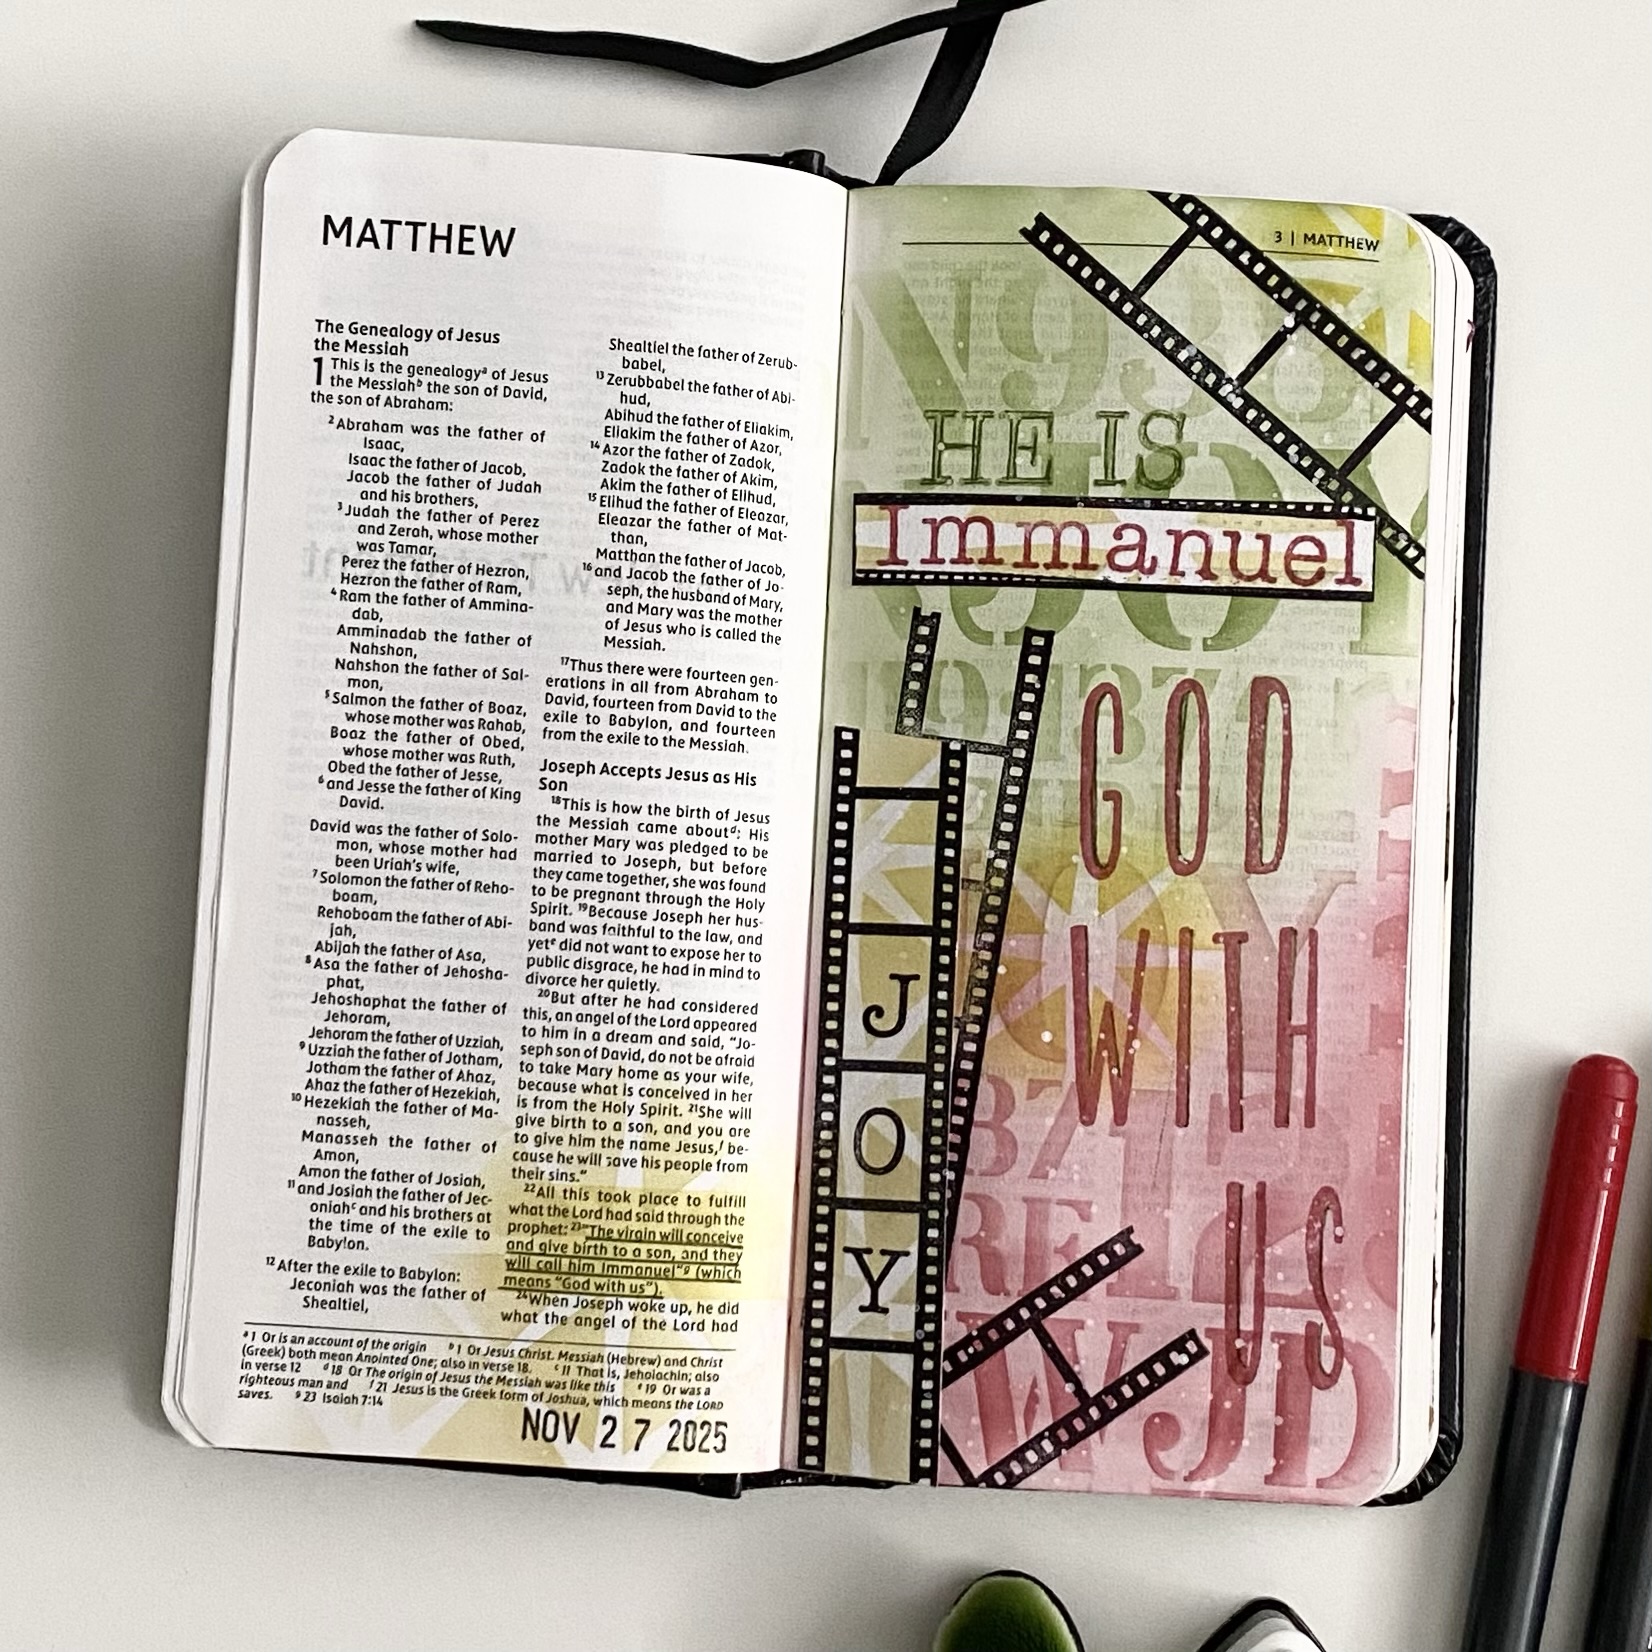 MATTHEW
The Genealogy of Jesus
the Messiah
1 This is the genealogyᵃ of Jesus
the Messiahᵇ the son of David,
the son of Abraham:
²Abraham was the father of
Isaac,
Isaac the father of Jacob,
Jacob the father of Judah
and his brothers,
³Judah the father of Perez
and Zerah, whose mother
was Tamar,
Perez the father of Hezron,
Hezron the father of Ram,
⁴Ram the father of Ammina-
dab,
Amminadab the father of
Nahshon,
Nahshon the father of Sal-
mon,
⁵Salmon the father of Boaz,
whose mother was Rahab,
Boaz the father of Obed,
whose mother was Ruth,
Obed the father of Jesse,
⁶and Jesse the father of King
David.
David was the father of Solo-
mon, whose mother had
been Uriah's wife,
⁷Solomon the father of Reho-
boam,
Rehoboam the father of Abi-
jah,
Abijah the father of Asa,
⁸Asa the father of Jehosha-
phat,
Jehoshaphat the father of
Jehoram,
Jehoram the father of Uzziah,
⁹Uzziah the father of Jotham,
Jotham the father of Ahaz,
Ahaz the father of Hezekiah,
¹⁰Hezekiah the father of Ma-
nasseh,
Manasseh the father of
Amon,
Amon the father of Josiah,
¹¹and Josiah the father of Jec-
oniahᶜ and his brothers at
the time of the exile to
Babylon.
¹²After the exile to Babylon:
Jeconiah was the father of
Shealtiel,
Shealtiel the father of Zerub-
babel,
¹³Zerubbabel the father of Abi-
hud,
Abihud the father of Eliakim,
Eliakim the father of Azor,
¹⁴Azor the father of Zadok,
Zadok the father of Akim,
Akim the father of Elihud,
¹⁵Elihud the father of Eleazar,
Eleazar the father of Mat-
than,
Matthan the father of Jacob,
¹⁶and Jacob the father of Jo-
seph, the husband of Mary,
and Mary was the mother
of Jesus who is called the
Messiah.
¹⁷Thus there were fourteen gen-
erations in all from Abraham to
David, fourteen from David to the
exile to Babylon, and fourteen
from the exile to the Messiah.
Joseph Accepts Jesus as His
Son
¹⁸This is how the birth of Jesus
the Messiah came aboutᵈ: His
mother Mary was pledged to be
married to Joseph, but before
they came together, she was found
to be pregnant through the Holy
Spirit. ¹⁹Because Joseph her hus-
band was faithful to the law, and
yetᵉ did not want to expose her to
public disgrace, he had in mind to
divorce her quietly.
²⁰But after he had considered
this, an angel of the Lord appeared
to him in a dream and said, "Jo-
seph son of David, do not be afraid
to take Mary home as your wife,
because what is conceived in her
is from the Holy Spirit. ²¹She will
give birth to a son, and you are
to give him the name Jesus,ᶠ be-
cause he will save his people from
their sins."
²²All this took place to fulfill
what the Lord had said through the
prophet: ²³"The virgin will conceive
and give birth to a son, and they
will call him Immanuel"ᵍ (which
means "God with us").
²⁴When Joseph woke up, he did
what the angel of the Lord had
ᵃ1 Or is an account of the origin ᵇ1 Or Jesus Christ. Messiah (Hebrew) and Christ
(Greek) both mean Anointed One; also in verse 18. ᶜ11 That is, Jehoiachin; also
in verse 12 ᵈ18 Or The origin of Jesus the Messiah was like this ᵉ19 Or was a
righteous man and ᶠ21 Jesus is the Greek form of Joshua, which means the LORD
saves. ᵍ23 Isaiah 7:14
NOV 27 2025
3 | MATTHEW
HE IS
Immanuel
GOD
WITH
US
J
O
Y